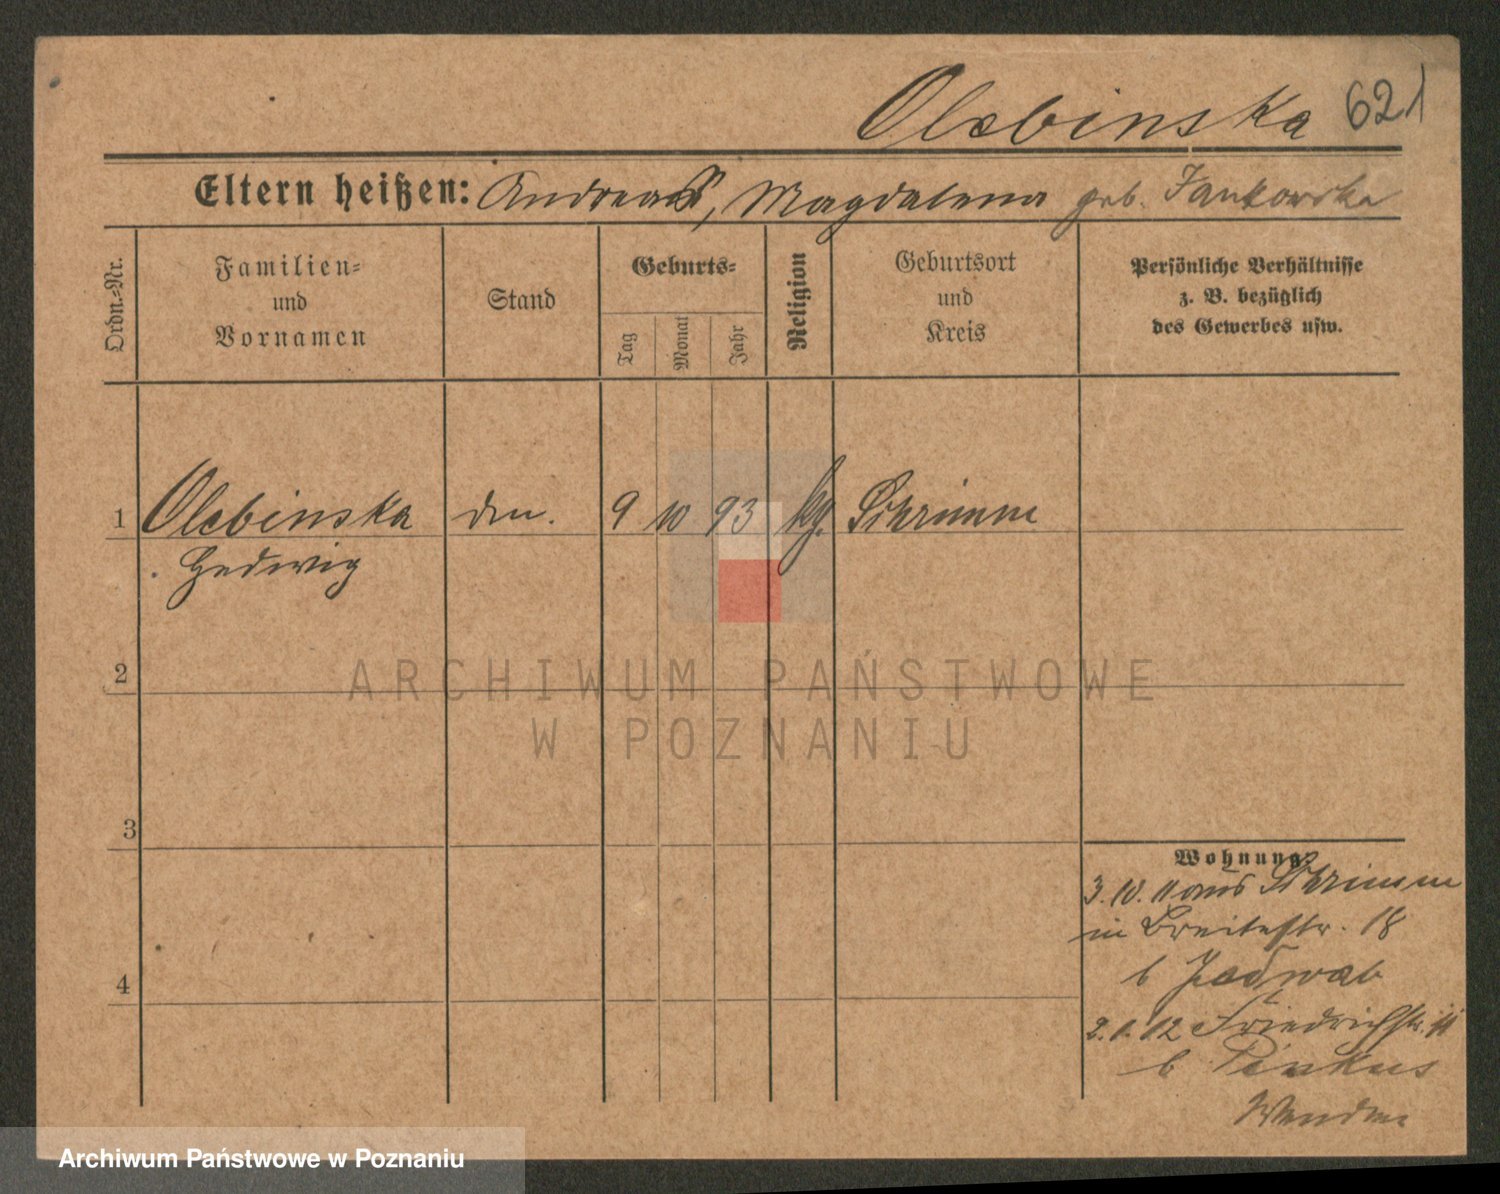 Olebinska 621
Eltern heißen: Andreas, Magdalena geb. Jankowska
Ordn.-Nr.
Familien-
und
Vornamen
Stand
Geburts-
Tag
Monat
Jahr
Religion
Geburtsort
und
Kreis
Persönliche Verhältnisse
z. B. bezüglich
des Gewerbes usw.
1 Olebinska 9 10 93 Schrimm
Hedwig
2
ARCHIWUM PAŃSTWOWE
W POZNANIU
3
4
Wohnung:
3.10.11 aus Schrimm
in Breitestr. 18
b Jadwab
2.1.12 Friedrichstr. 11
b Pinkus
Wenden
Archiwum Państwowe w Poznaniu